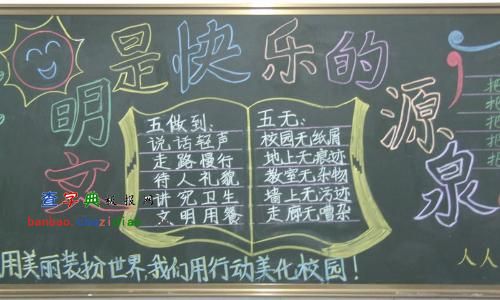 文明是快乐的源泉
五做到：
说话轻声
走路慢行
待人礼貌
讲究卫生
文明用餐
五无：
校园无纸屑
地上无痕迹
教室无杂物
墙上无污迹
走廊无嘈杂
查字典板报网
banbao.chazidian
用美丽装扮世界，我们用行动美化校园！
把
人人